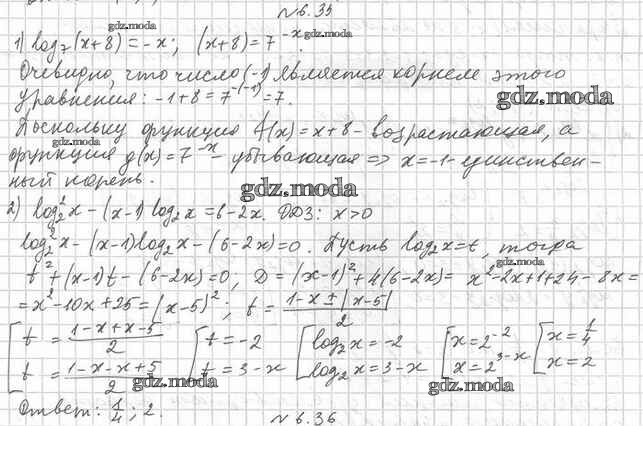 №6.35
gdz.moda
1) log₇(x+8)=-x; (x+8)=7^(-x).
gdz.moda
Очевидно, что число (-1) является корнем этого
уравнения: -1+8=7^(-(-1))=7.
gdz.moda
Поскольку функция f(x)=x+8 - возрастающая, а
gdz.moda
функция g(x)=7^(-x) - убывающая => x=-1 - единствен-
ный корень.
gdz.moda
2) log₂²x-(x-1)log₂x=6-2x. ОДЗ: x>0
log₂²x-(x-1)log₂x-(6-2x)=0. Пусть log₂x=t, тогда
gdz.moda
t²+(x-1)t-(6-2x)=0, D=(x-1)²+4(6-2x)=x²-2x+1+24-8x=
=x²-10x+25=(x-5)²; t=(1-x±|x-5|)/2
[t=(1-x+x-5)/2 [t=-2 [log₂x=-2 [x=2^(-2) [x=1/4
t=(1-x-x+5)/2 t=3-x log₂x=3-x x=2^(3-x) x=2
gdz.moda gdz.moda
Ответ: 1/4; 2.
№6.36